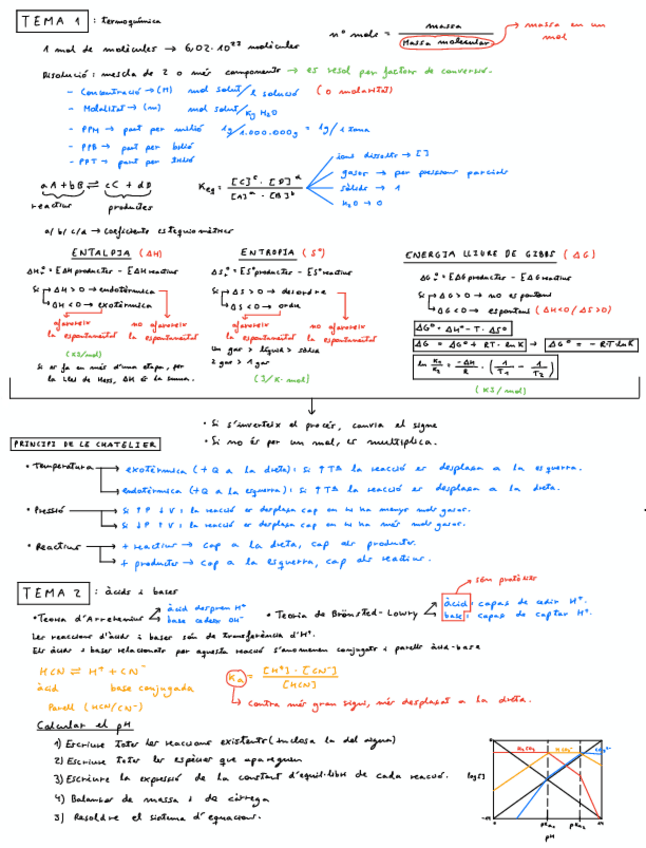 TEMA 1 : termoquímica
nº mols = massa / Massa molecular → massa en un mol
1 mol de molècules → 6,02 · 10²³ molècules
Dissolució : mescla de 2 o més components → es resol per factors de conversió.
- Concentració → (M) mol solut/L solució (o molaritat)
- Molalitat → (m) mol solut/Kg H2O
- PPM → part per milió 1g/1.000.000g = 1g/1 tona
- PPB → part per bilió
- PPT → part per trilió
aA + bB ⇌ cC + dD
reactius productes
Keq = [C]ᶜ · [D]ᵈ / [A]ᵃ · [B]ᵇ
ions dissolts → [ ]
gasos → per pressions parcials
sòlids → 1
H2O → 0
a/ b/ c/d → coeficients estequiomètrics
ENTALPIA (ΔH)
ΔHr° = ΣΔH productes - ΣΔH reactius
Si ΔH > 0 → endotèrmica
ΔH < 0 → exotèrmica
afavoreix la espontaneïtat
no afavoreix la espontaneïtat
(KJ/mol)
Si es fa en més d'una etapa, per
la Llei de Hess, ΔH és la suma.
ENTROPIA (S°)
ΔSr° = ΣS° productes - ΣS° reactius
Si ΔS > 0 → desordre
ΔS < 0 → ordre
afavoreix la espontaneïtat
no afavoreix la espontaneïtat
Un gas > líquid > sòlid
2 gas > 1 gas
(J/K·mol)
ENERGIA LLIURE DE GIBBS (ΔG)
ΔGr° = ΣΔG productes - ΣΔG reactius
Si ΔG > 0 → no espontani
ΔG < 0 → espontani (ΔH<0 / ΔS>0)
ΔG° = ΔH° - T · ΔS°
ΔG = ΔG° + RT · lnK → ΔG° = -RTlnK
ln K2/K1 = -ΔH/R · (1/T1 - 1/T2)
(KJ/mol)
• Si s'inverteix el procés, canvia el signe
• Si no és per un mol, es multiplica.
PRINCIPI DE LE CHATELIER
• Temperatura → exotèrmica (+Q a la dreta) : si ↑Tª la reacció es desplaça a la esquerra.
→ endotèrmica (+Q a la esquerra) : si ↑Tª la reacció es desplaça a la dreta.
• Pressió → Si ↑P ↓V : la reacció es desplaça cap on hi ha menys mols gasos.
→ Si ↓P ↑V : la reacció es desplaça cap on hi ha més mols gasos.
• Reactius → + reactius → cap a la dreta, cap als productes.
→ + productes → cap a la esquerra, cap als reactius.
TEMA 2 : àcids i bases
són pròtons
• Teoria d'Arrehenius àcid despren H⁺
base cedeix OH⁻
• Teoria de Brönsted-Lowry àcid: capaç de cedir H⁺.
base: capaç de captar H⁺.
Les reaccions d'àcids i bases són de transferència d'H⁺.
Els àcids i bases relacionats per aquesta reacció s'anomenen conjugats i parells àcid-base
HCN ⇌ H⁺ + CN⁻
àcid base conjugada
Parell (HCN/CN⁻)
Ka = [H⁺] · [CN⁻] / [HCN]
contra més gran sigui, més desplaçat a la dreta.
Calcular el pH
1) Escriure totes les reaccions existents (inclosa la del aigua)
2) Escriure totes les espècies que apareguen
3) Escriure la expressió de la constant d'equilibri de cada reacció.
4) Balanços de massa i de càrrega
5) Resoldre el sistema d'equacions.
log[ ]
pKa1 pKa2
pH